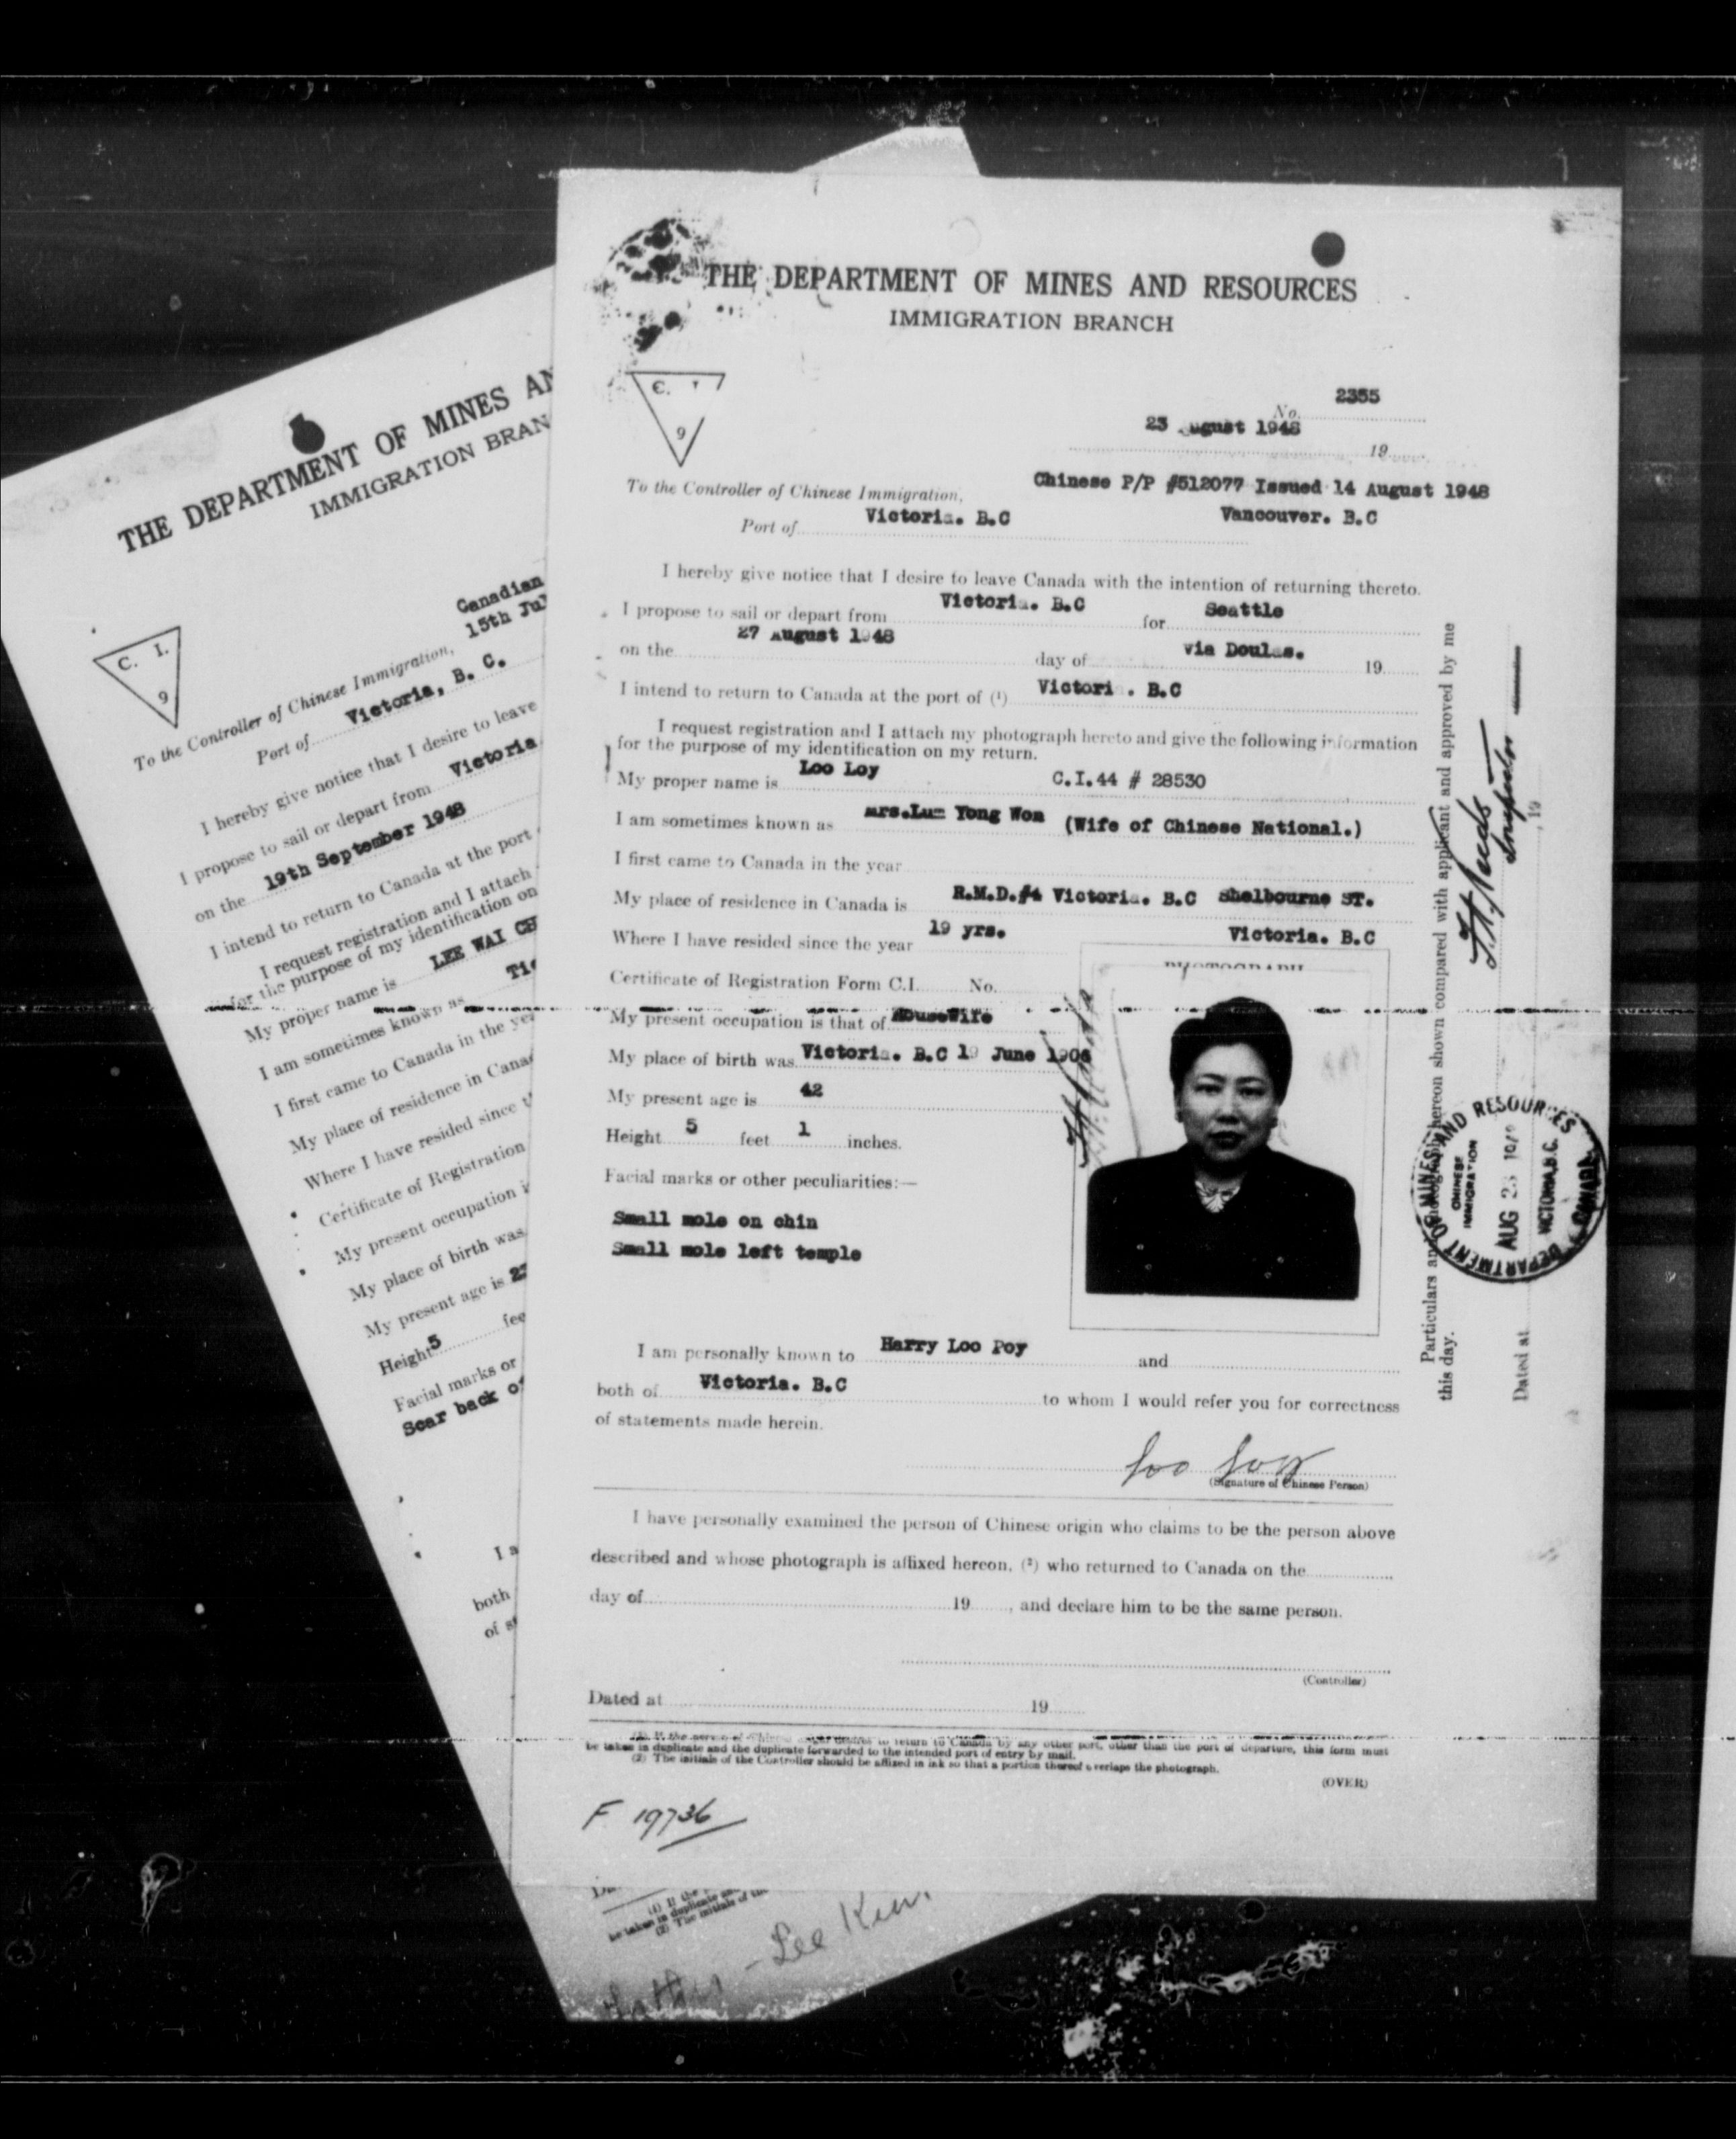 THE DEPARTMENT OF MINES AND RESOURCES
IMMIGRATION BRANCH
C. I
9
No. 2355
23 ugust 1948
19
To the Controller of Chinese Immigration,
Chinese P/P #512077 Issued 14 August 1948
Port of Victoria. B.C
Vancouver. B.C
I hereby give notice that I desire to leave Canada with the intention of returning thereto.
I propose to sail or depart from Victoria. B.C for Seattle
on the 27 August 1948 day of via Doulas. 19
I intend to return to Canada at the port of (¹) Victori . B.C
I request registration and I attach my photograph hereto and give the following information
for the purpose of my identification on my return.
My proper name is Loo Loy C.I.44 # 28530
I am sometimes known as Mrs.Lum Yong Won (Wife of Chinese National.)
I first came to Canada in the year
My place of residence in Canada is R.M.D.#4 Victoria. B.C Shelbourne ST.
Where I have resided since the year 19 yrs. Victoria. B.C
Certificate of Registration Form C.I. No.
PHOTOGRAPH
My present occupation is that of HouseWife
My place of birth was Victoria. B.C 19 June 1906
My present age is 42
Height 5 feet 1 inches.
Facial marks or other peculiarities:—
Small mole on chin
Small mole left temple
I am personally known to Harry Loo Poy and
both of Victoria. B.C to whom I would refer you for correctness
of statements made herein.
Loo Loy
(Signature of Chinese Person)
I have personally examined the person of Chinese origin who claims to be the person above
described and whose photograph is affixed hereon, (²) who returned to Canada on the
day of 19 , and declare him to be the same person.
(Controller)
Dated at 19
(1) If the person of Chinese origin desires to return to Canada by any other port, other than the port of departure, this form must
be taken in duplicate and the duplicate forwarded to the intended port of entry by mail.
(2) The initials of the Controller should be affixed in ink so that a portion thereof overlaps the photograph.
(OVER)
F 19736
Particulars and photograph hereon shown compared with applicant and approved by me
this day.
Inspector
Dated at , 19
DEPARTMENT OF MINES AND RESOURCES
CHINESE
IMMIGRATION
AUG 23
VICTORIA, B.C.
CANADA
THE DEPARTMENT OF MINES AN
IMMIGRATION BRAN
C. I.
9
Canadian
15th Jul
To the Controller of Chinese Immigration,
Port of Victoria, B. C.
I hereby give notice that I desire to leave
I propose to sail or depart from Victoria
on the 19th September 1948
I intend to return to Canada at the port
I request registration and I attach
for the purpose of my identification on
My proper name is LEE WAI CH
I am sometimes known as
I first came to Canada in the yea
My place of residence in Canad
Where I have resided since t
Certificate of Registration
My present occupation i
My place of birth was
My present age is 2
Height 5 fee
Facial marks or
Scar back of
I a
both
of st
(1) If the
be taken in duplicate
(2) The initials of the
- Lee